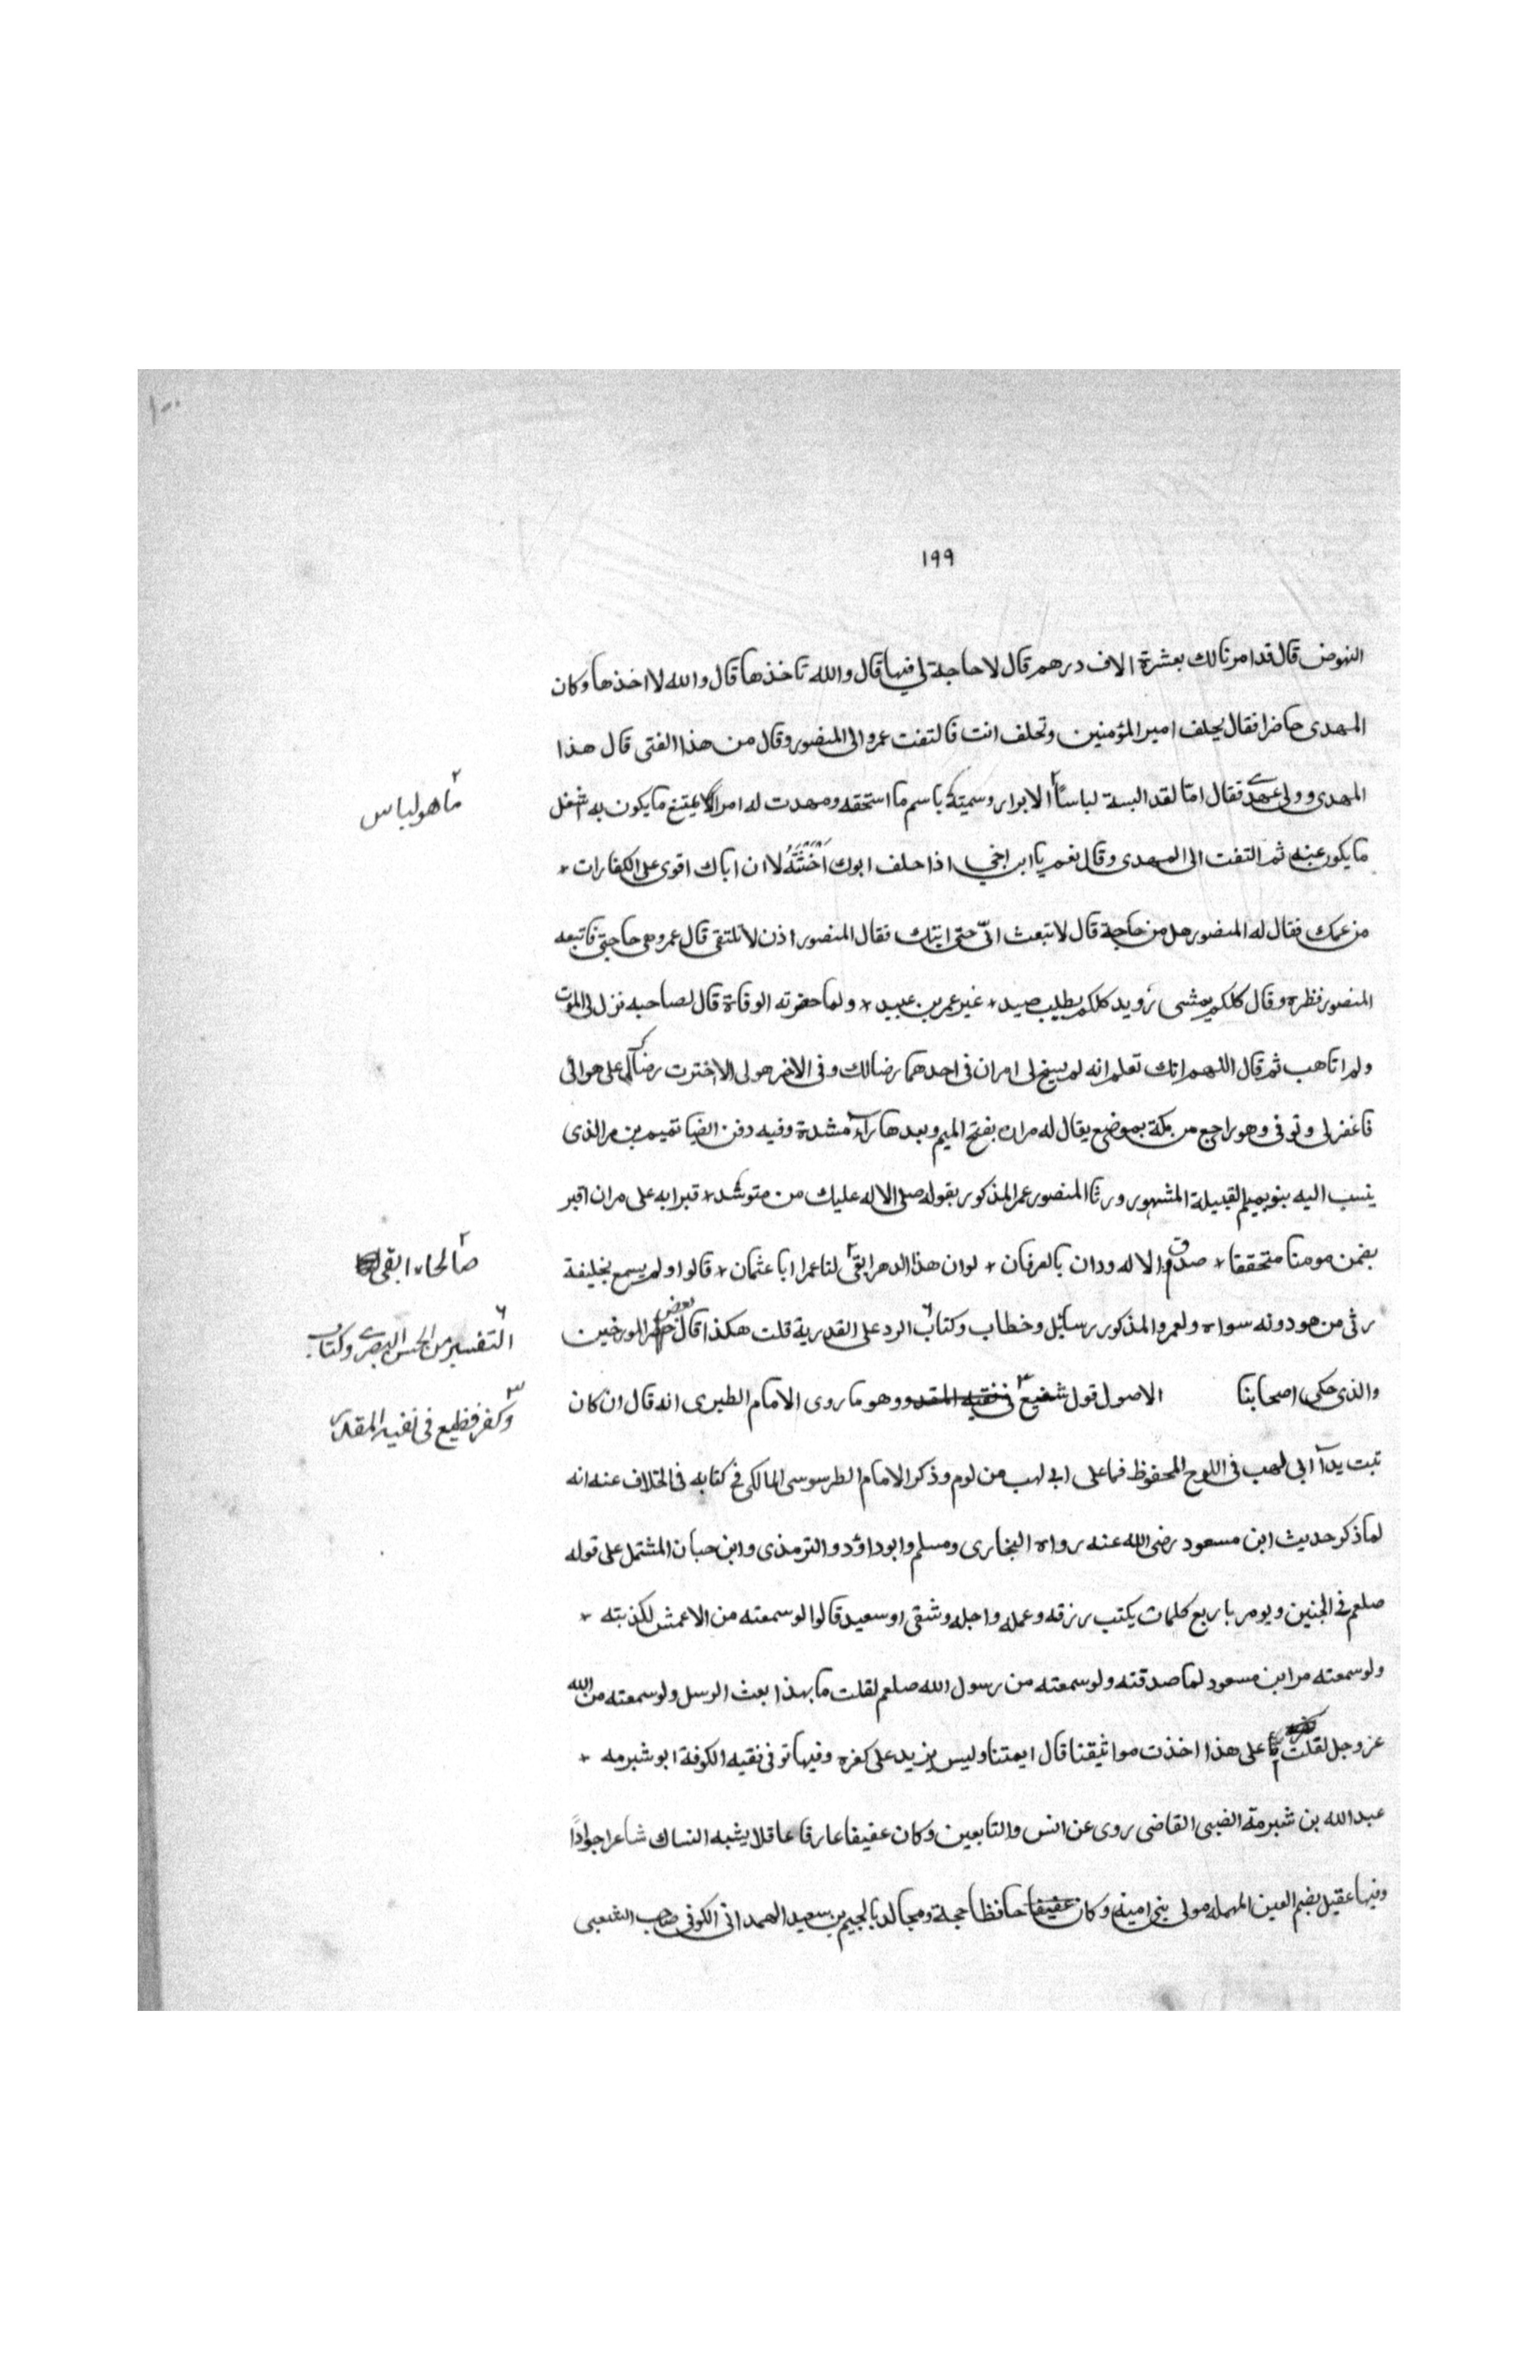 ١٠٠
١٩٩
النهوض قال قد امرنا لك بعشرة الاف درهم قال لا حاجة لي فيها قال والله تاخذها قال والله لا اخذها وكان
المهدى حاضرا فقال يحلف امير المؤمنين وتحلف انت فالتفت عمرو الى المنصور وقال من هذا الفتى قال هذا
المهدى وولى عهدى فقال اما لقد البسته لباسًا الابرار وسميته باسم ما استحقه ومهدت له امرا ما يكون به اشغل
ما هو لباس
ما يكون عنه ثم التفت الى المهدى وقال نعم يا ابن اخي اذا حلف ابوك احنثه لان اباك اقوى على الكفارات *
من عمك فقال له المنصور هل من حاجة قال لا تبعث الىّ حتى اتيك فقال المنصور اذن لا نلتقى قال عمرو هى حاجتى فاتبعه
المنصور نظره وقال كلكم يمشى رويد كلكم يطلب صيد * غير عمر بن عبيد * ولما حضرته الوفاة قال لصاحبه نزل لى الموت
ولم اتاهب ثم قال اللهم انك تعلم انه لم يسنح لى امران فى احدهما رضا لك وفى الاخر هو لى الا اخترت رضاك على هوائى
فاغفر لى وتوفى وهو راجع من مكة بموضع يقال له مران بفتح الميم وبعدها راء مشدة وفيه دفن ايضا تميم بن مر الذى
ينسب اليه بنو تميم القبيلة المشهور ورثا المنصور عمرا المذكور بقوله صلى الاله عليك من متوسد * قبرا به على مران اقبر
بضمن مومنا متحققا * صدق الاله ودان بالعرفان * لوان هذا الدهر ابقى لنا عمرا ابا عثمان * قالوا ولم يسمع بخليفة
صالحا ابقى
رثى من هو دونه سواه ولعمرو المذكور رسائل وخطاب وكتاب الرد على القدرية قلت هكذا قال بعض المورخين
التفسير من الحسن البصرى وكتاب
والذى حكى اصحابنا الاصول قول شنيع وهو ما روى الامام الطبرى انه قال ان كان
وكفر فظيع فى نفيه المقدر
تبت يدا ابى لهب فى اللوح المحفوظ فما على ابى لهب من لوم وذكر الامام الطرسوسى المالكى فى كتابه فى الخلاف عنه انه
لما ذكر حديث ابن مسعود رضى الله عنه رواه البخارى ومسلم وابو داؤد والترمذى وابن حبان المشتمل على قوله
صلعم فى الجنين ويومر باربع كلمات يكتب رزقه وعمله واجله وشقى او سعيد قالوا لو سمعته من الاعمش لكذبته *
ولو سمعته من ابن مسعود لما صدقته ولو سمعته من رسول الله صلعم لقلت ما بهذا بعث الرسل ولو سمعته من الله
عز وجل لقلت ما على هذا اخذت مواثيقنا قال ايمتنا وليس يزيد على كفره وفيها توفى فقيه الكوفة ابو شبرمه *
عبد الله بن شبرمة الضبى القاضى روى عن انس والتابعين وكان عفيفا عارفا عاقلا يشبه النساك شاعرا جوادًا
وفيها عقيل بضم العين المهمله مولى بنى امية وكان حافظا حجة ومجالد بالجيم بن سعيد الهمدانى الكوفى صاحب الشعبى